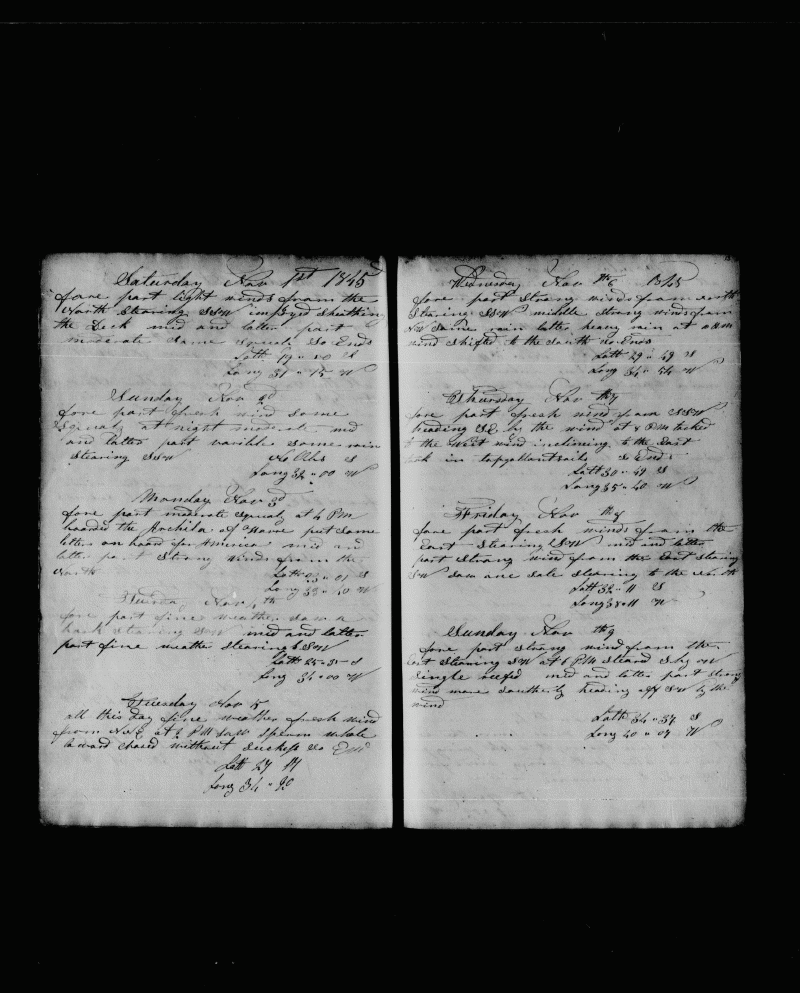 Saturday Nov 1st 1845
fore part light winds from the
North Stearing SSW imployed Sheathing
the Deck mid and latter part
moderate Some Squals So Ends
Latt 19 " 20 S
Long 31 " 15 W
Sunday Nov 2d
fore part fresh wind some
Squaly at night moderate mid
and latter part varible some rain
Stearing SSW No Obs S
Long 32 " 00 W
Monday Nov 3d
fore part moderate Squaly at 4 PM
boarded the of Havre put some
letters on board for America mid and
latter part Strong winds from the
North Latt 23 " 01 S
Long 32 " 40 W
Nov 4th
fore part fine weather Saw a
bark Stearing SSW mid and latter
part fine weather Stearing SSW
Latt 25 " 35 S
Long 34 " 00 W
Tuesday Nov 5
all this day fine weather fresh wind
from NE at 2 PM saw Sperm whale
loward chased without Suckess So End
Latt 27 14
Long 34 " 20
Wednesday Nov 6th 1845
fore part Strong winds from north
Stearing SSW middle Strong winds from
NW Some rain latter heavy rain at AM
wind shifted to the South So Ends
Latt 29 " 49 S
Long 34 " 54 W
Thursday Nov 7th
fore part fresh wind from SSW
heading SE by the wind at 4 PM tacked
to the West wind inclining to the East
took in topgallantsails So Ends
Latt 30 " 49 S
Long 35 " 40 W
Friday Nov 8th
fore part fresh winds from the
East Stearing SSW mid and latter
part Strong wind from the East Stearing
SW Saw one Sale Stearing to the North
Latt 32 " 11 S
Long 38 " 11 W
Sunday Nov 9th
fore part Strong wind from the
East Stearing SW at 6 PM Steard S by W
Single reefd mid and latter part Strong
wind more Southerly heading off SW by the
wind
Latt 34 " 37 S
Long 40 " 07 W